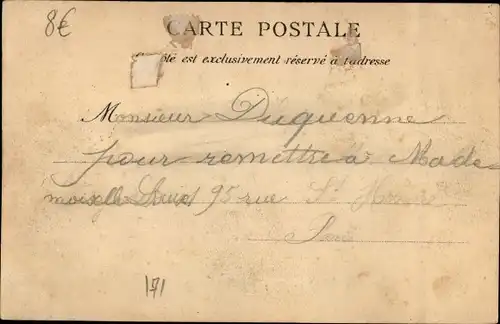 8€
CARTE POSTALE
côté est exclusivement réservé à l'adresse
Monsieur Duquenne
pour remettre à Made
moiselle 95 rue St
171